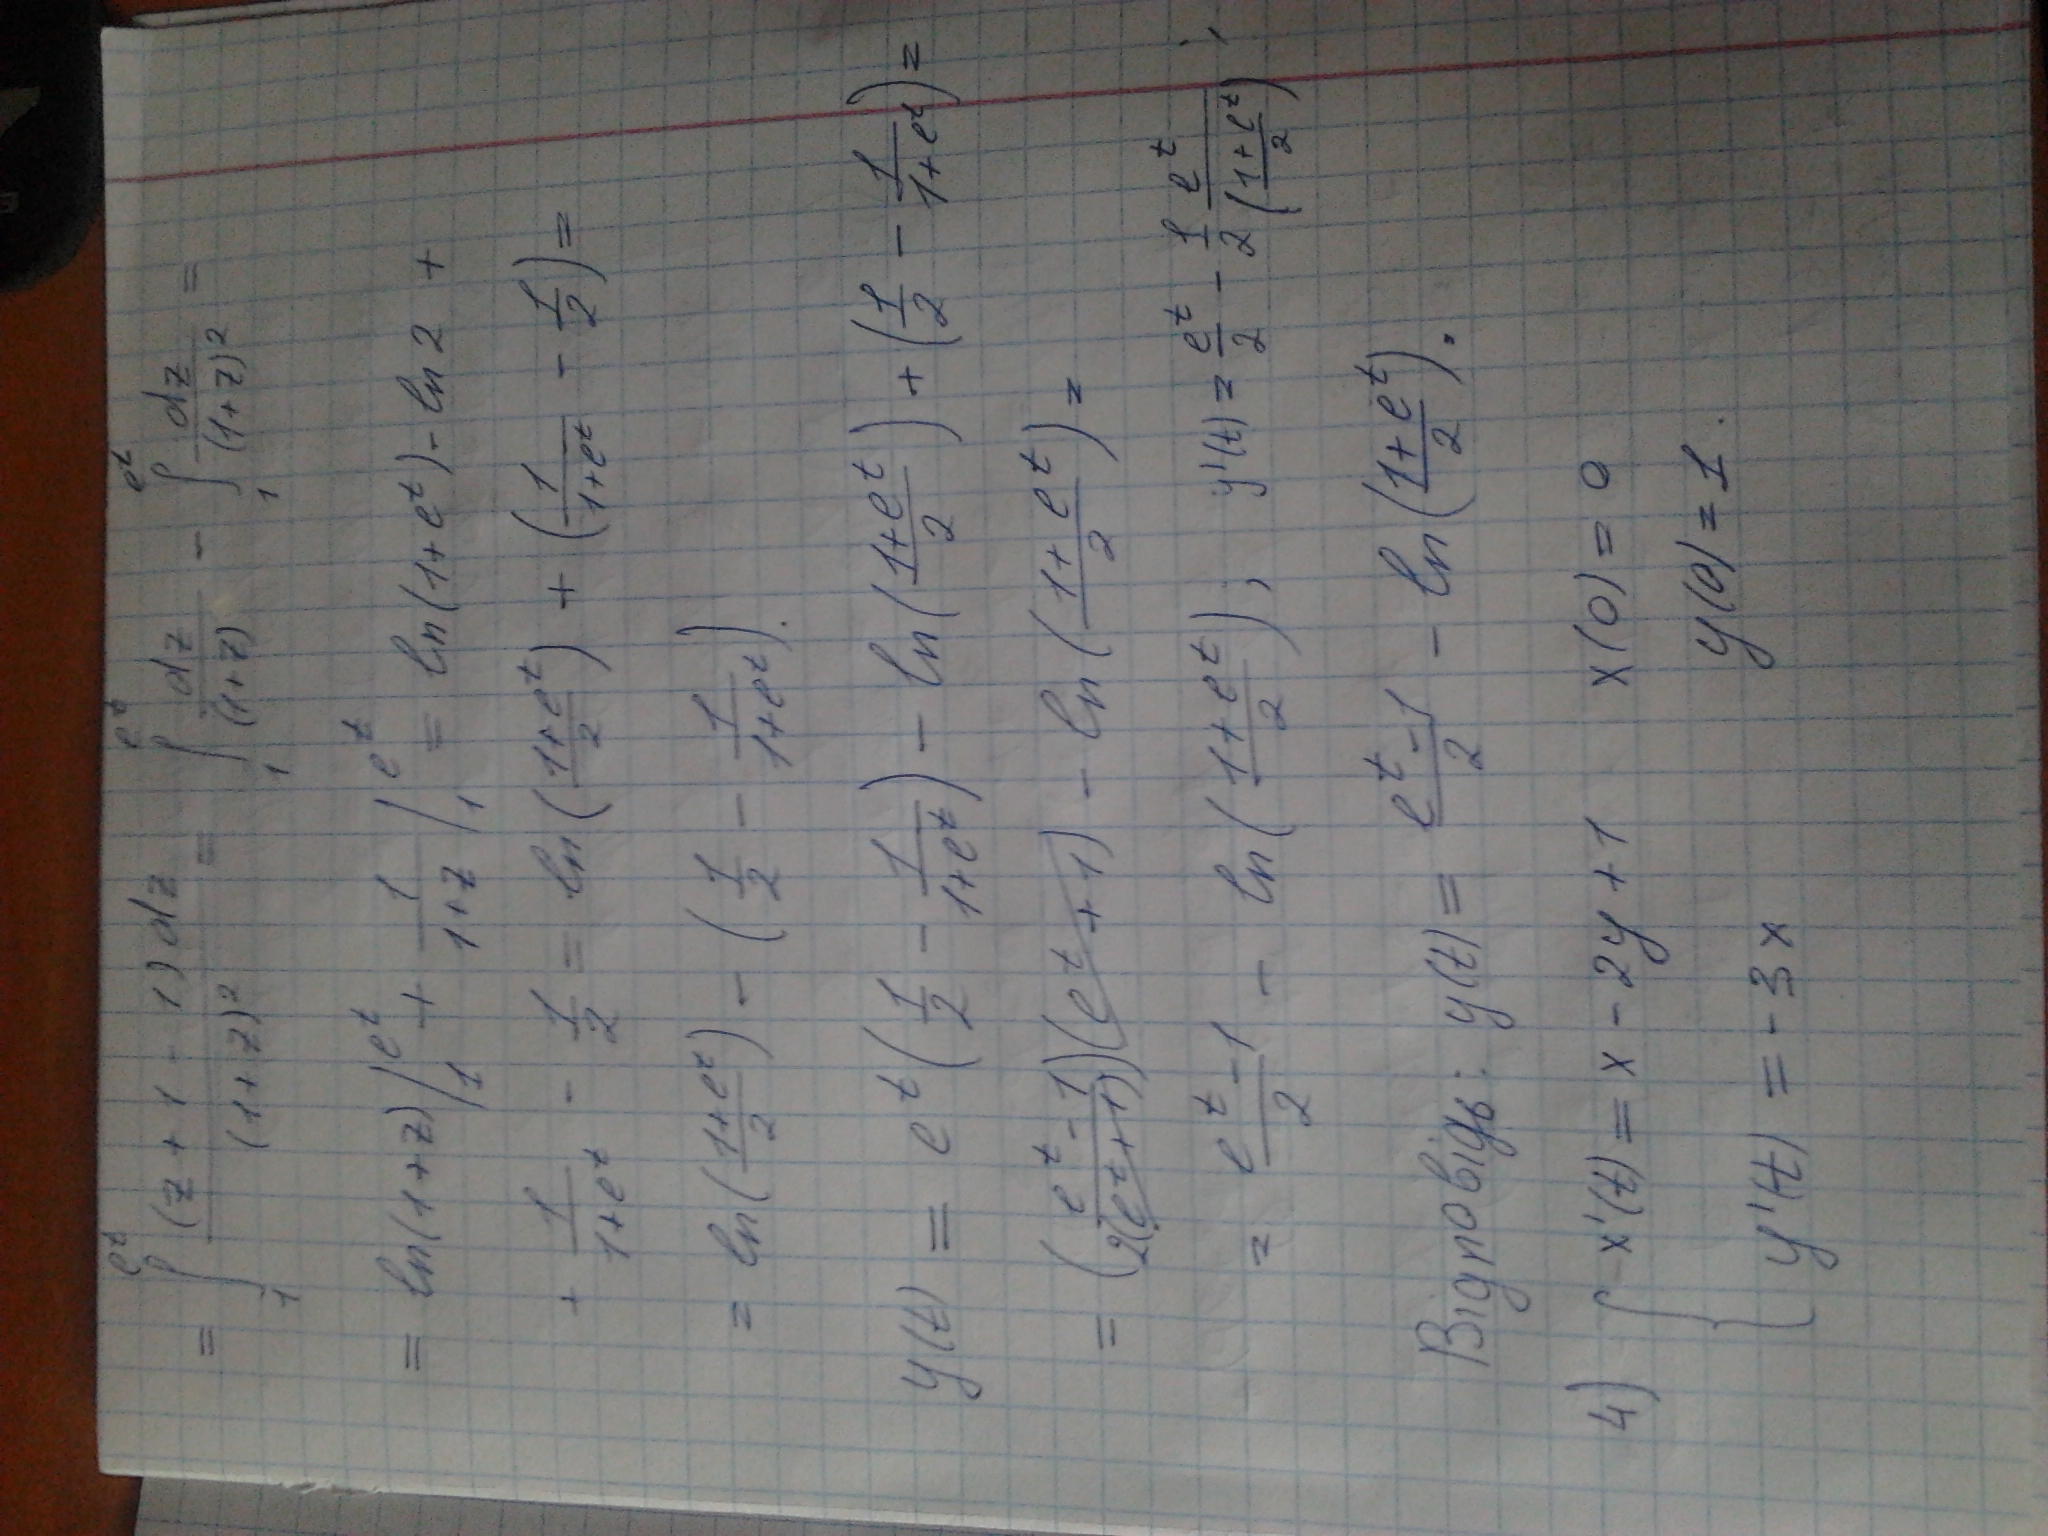 = ∫₁^{e^t} (z + 1 - 1) dz / (1 + z)² = ∫₁^{e^t} dz / (1+z) - ∫₁^{e^t} dz / (1+z)² =
= ln(1+z) |₁^{e^t} + 1/(1+z) |₁^{e^t} = ln(1+e^t) - ln 2 +
+ 1/(1+e^t) - 1/2 = ln((1+e^t)/2) + (1/(1+e^t) - 1/2) =
= ln((1+e^t)/2) - (1/2 - 1/(1+e^t)).
y(t) = e^t (1/2 - 1/(1+e^t)) - ln((1+e^t)/2) + (1/2 - 1/(1+e^t)) =
= ((e^t - 1)/(2(e^t + 1)))(e^t + 1) - ln((1 + e^t)/2) =
= (e^t - 1)/2 - ln((1+e^t)/2); y'(t) = e^t/2 - 1/2 e^t/((1+e^t)/2);
Відповідь: y(t) = (e^t - 1)/2 - ln((1+e^t)/2).
4) { x'(t) = x - 2y + 1 x(0) = 0
y(0) = 1.
y'(t) = - 3x